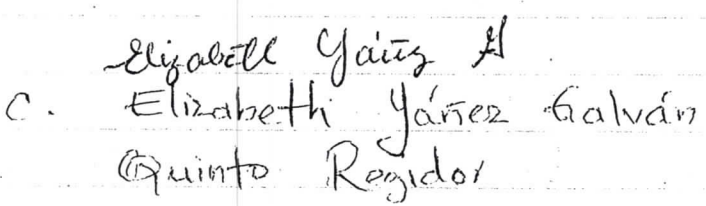 Elizabeth Yáñez G
C. Elizabeth Yáñez Galván
Quinto Regidor